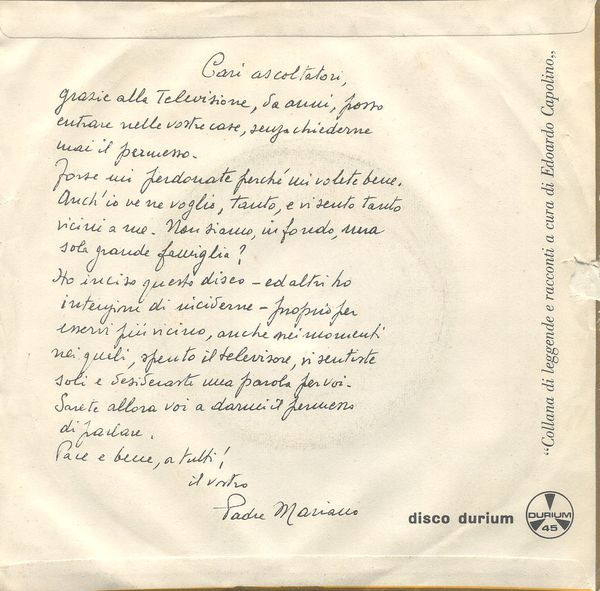 Cari ascoltatori,
grazie alla Televisione, da anni, posso
entrare nelle vostre case, senza chiederne
mai il permesso.
Forse mi perdonate perché mi volete bene.
Anch'io ve ne voglio, tanto, e vi sento tanto
vicini a me. Non siamo, in fondo, una
sola grande famiglia?
Ho inciso questo disco - ed altri ho
intenzioni di inciderne - proprio per
esservi più vicino, anche nei momenti
nei quali, spento il televisore, vi sentiste
soli e desideraste una parola per voi.
Sarete allora voi a darmi il permesso
di parlare.
Pace e bene, a tutti!
il vostro
Padre Mariano
disco durium
DURIUM
45
“Collana di leggende e racconti a cura di Edoardo Capolino„